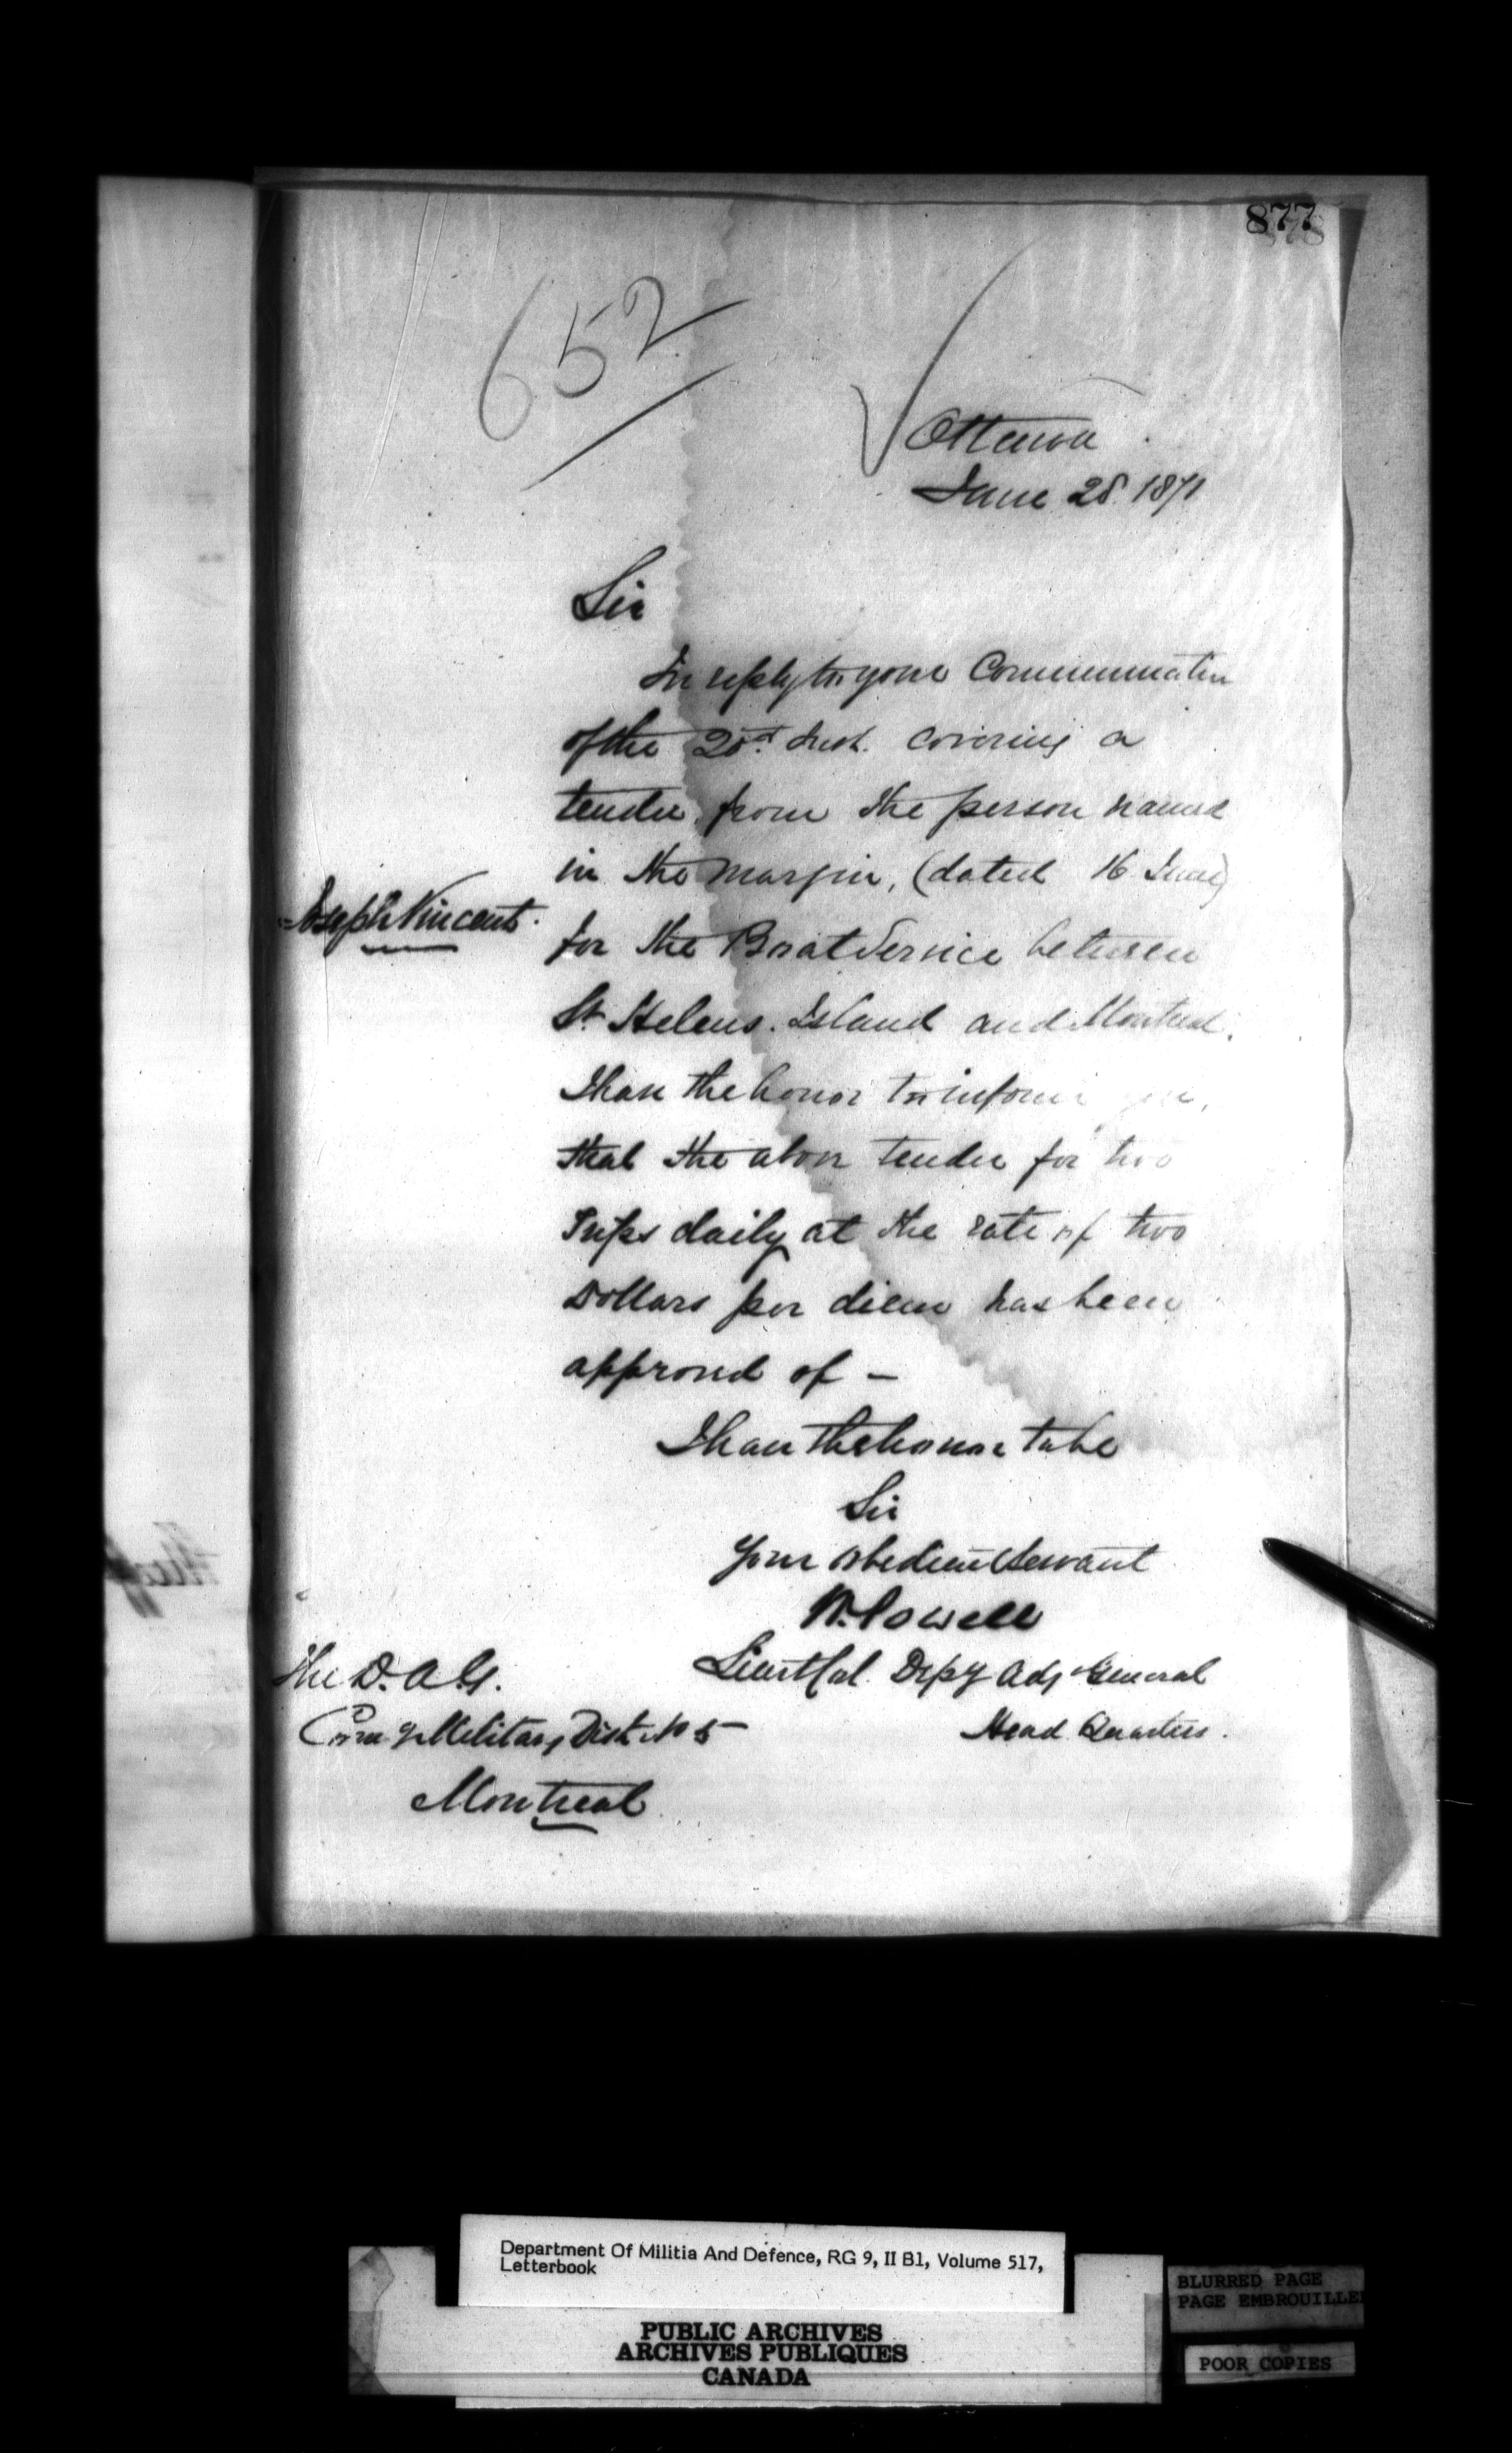 877
652
Ottawa
June 28. 1871
Sir
In reply to your Communication
of the inst. covering a
tender from the person named
in the margin, (dated 16 June)
Joseph Vincent.
for the Boat Service between
St Helens. Island and Montreal.
I have the honor to inform you,
that the above tender for two
Trips daily at the rate of two
Dollars per diem has been
approved of —
I have the honor to be
Sir
Your obedient Servant
W. Powell
Lieut Col. Depy Adj General
Head Quarters.
The D. A. G.
Comg Military Dist No 5
Montreal
Department Of Militia And Defence, RG 9, II B1, Volume 517,
Letterbook
BLURRED PAGE
PAGE EMBROUILLE
PUBLIC ARCHIVES
ARCHIVES PUBLIQUES
CANADA
POOR COPIES